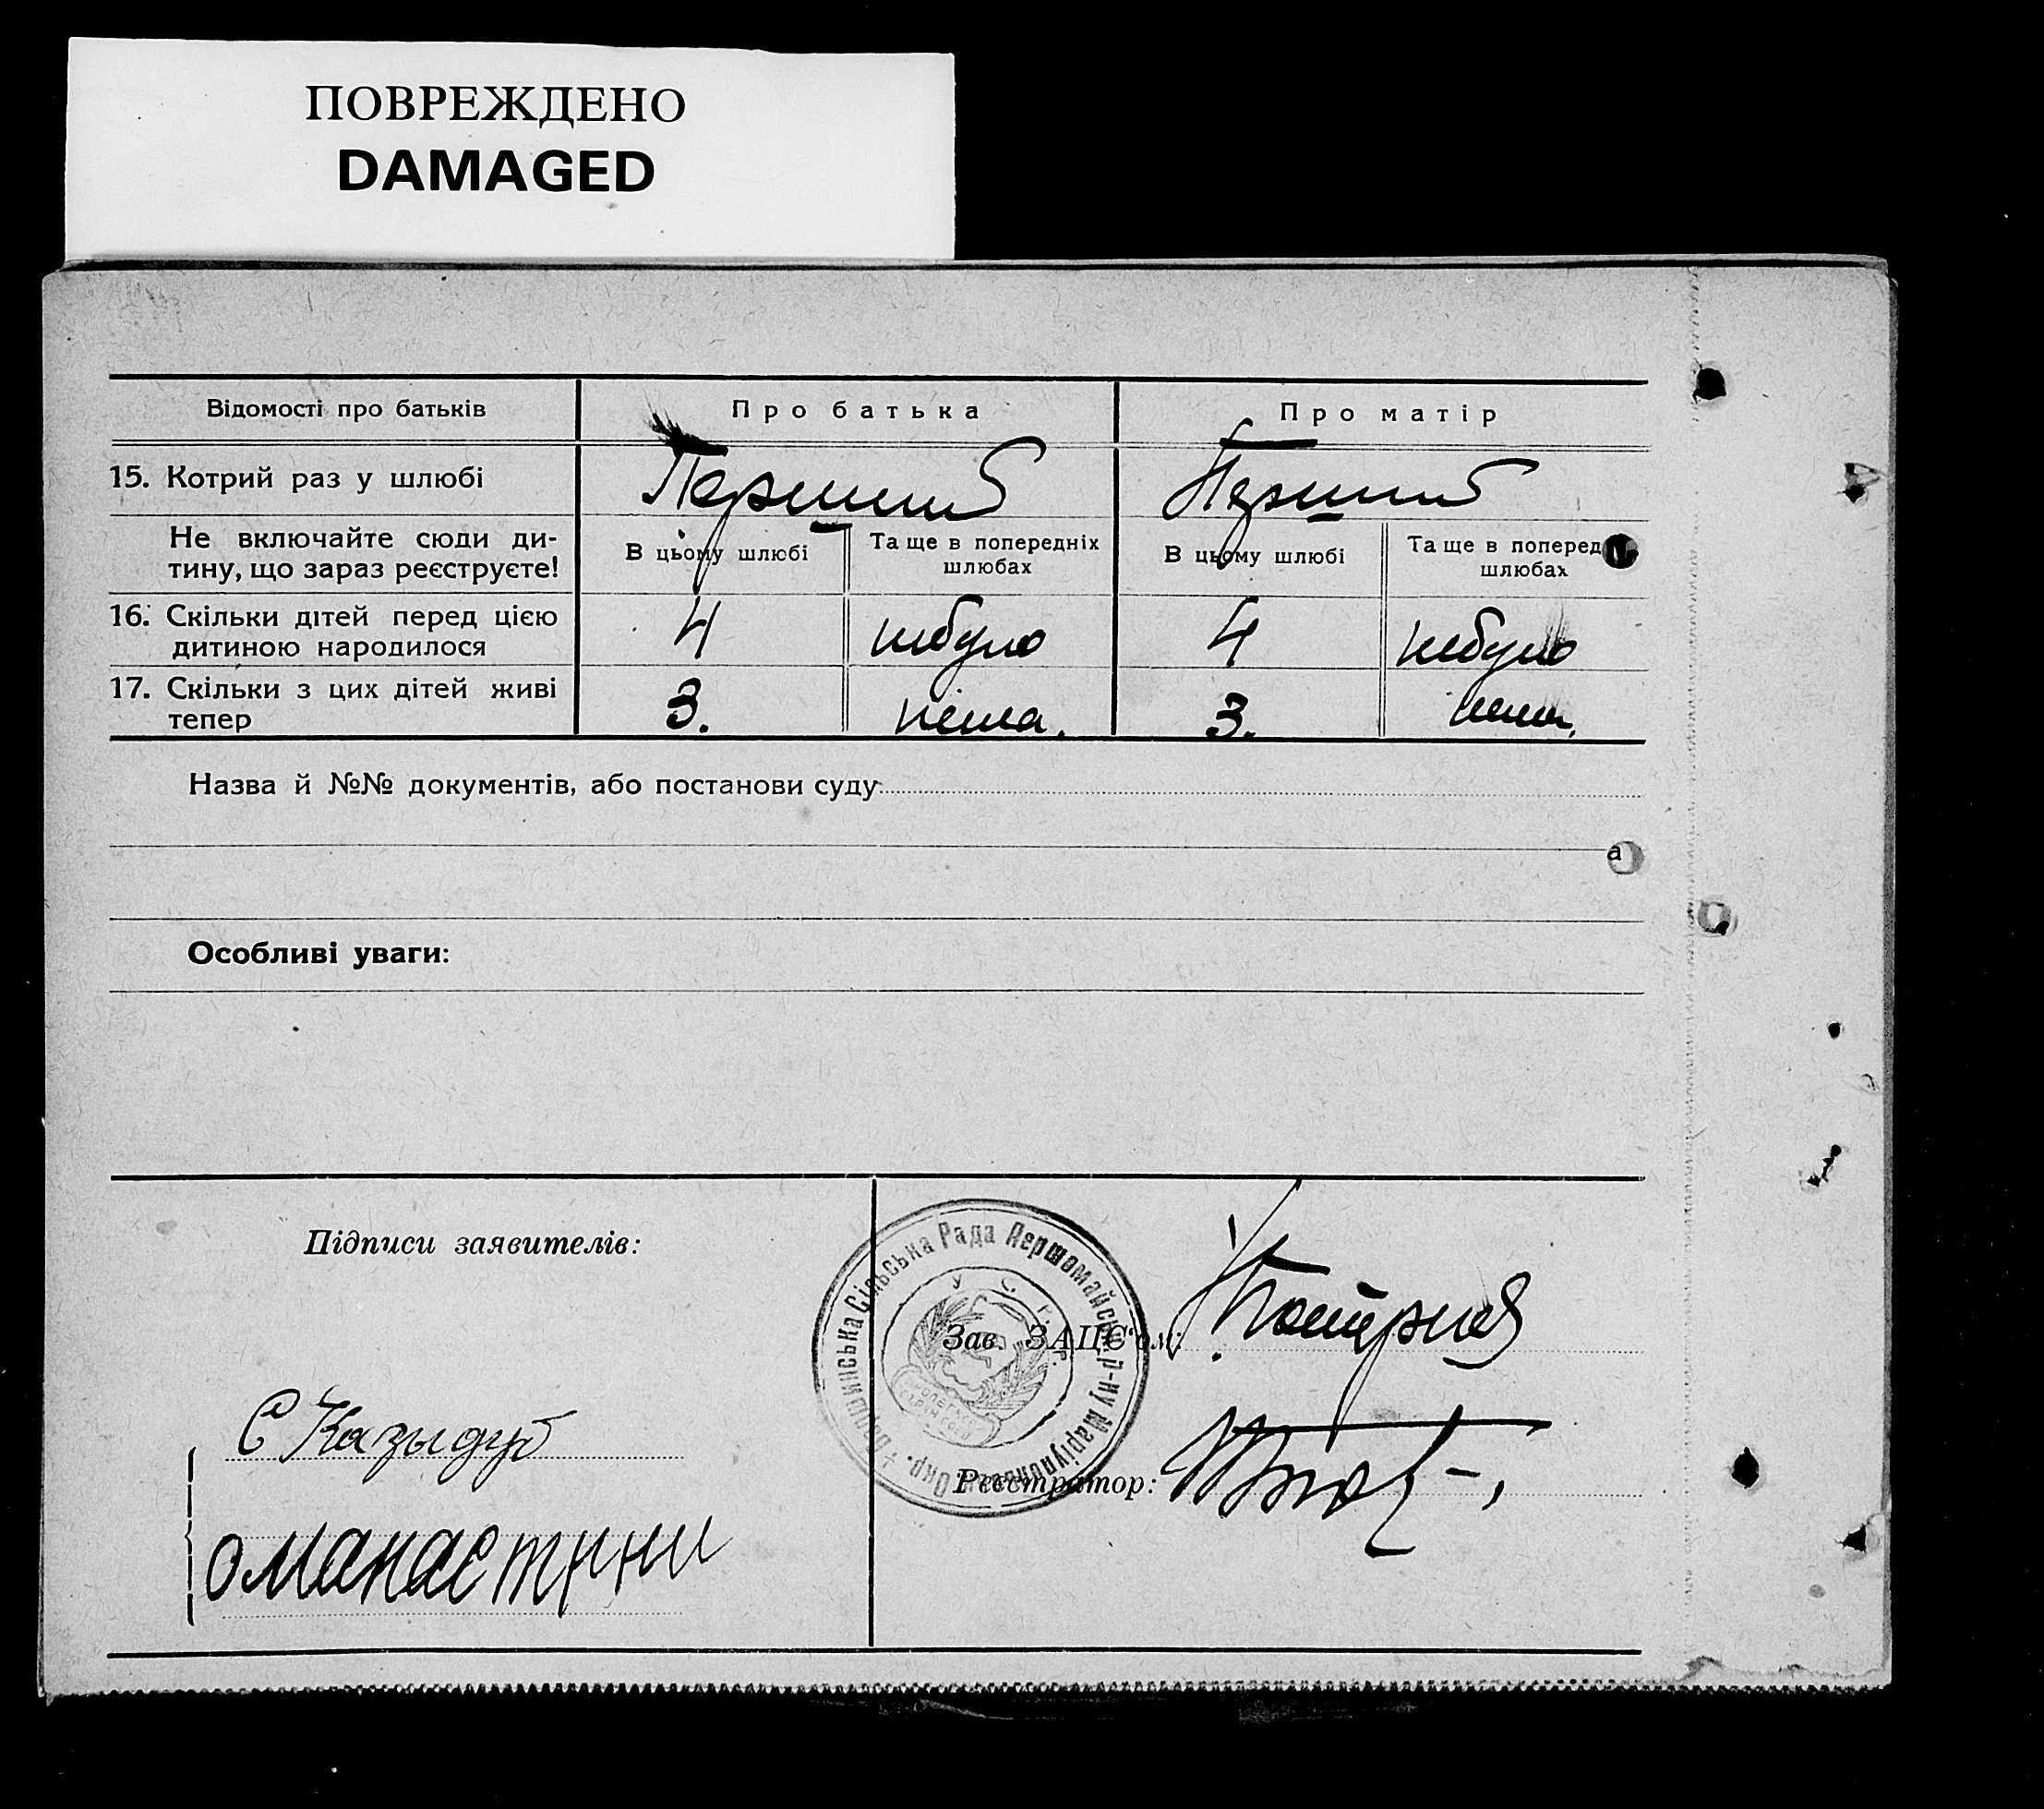 ПОВРЕЖДЕНО
DAMAGED
Відомості про батьків
Про батька
Про матір
15. Котрий раз у шлюбі
Перший
Перший
Не включайте сюди ди-
тину, що зараз реєструєте!
В цьому шлюбі
Та ще в попередніх
шлюбах
В цьому шлюбі
Та ще в поперед
шлюбах
16. Скільки дітей перед цією
дитиною народилося
4
небуло
4
небуло
17. Скільки з цих дітей живі
тепер
3.
нема.
3.
нема.
Назва й №№ документів, або постанови суду:
а
Особливі уваги:
Підписи заявителів:
Сільська Рада Першомайськ. р-ну Маріупільськ. Окр.
У. С. Р. Р.
Зав. ЗАЦС'ом:
С Казыдуб
Реєстратор: